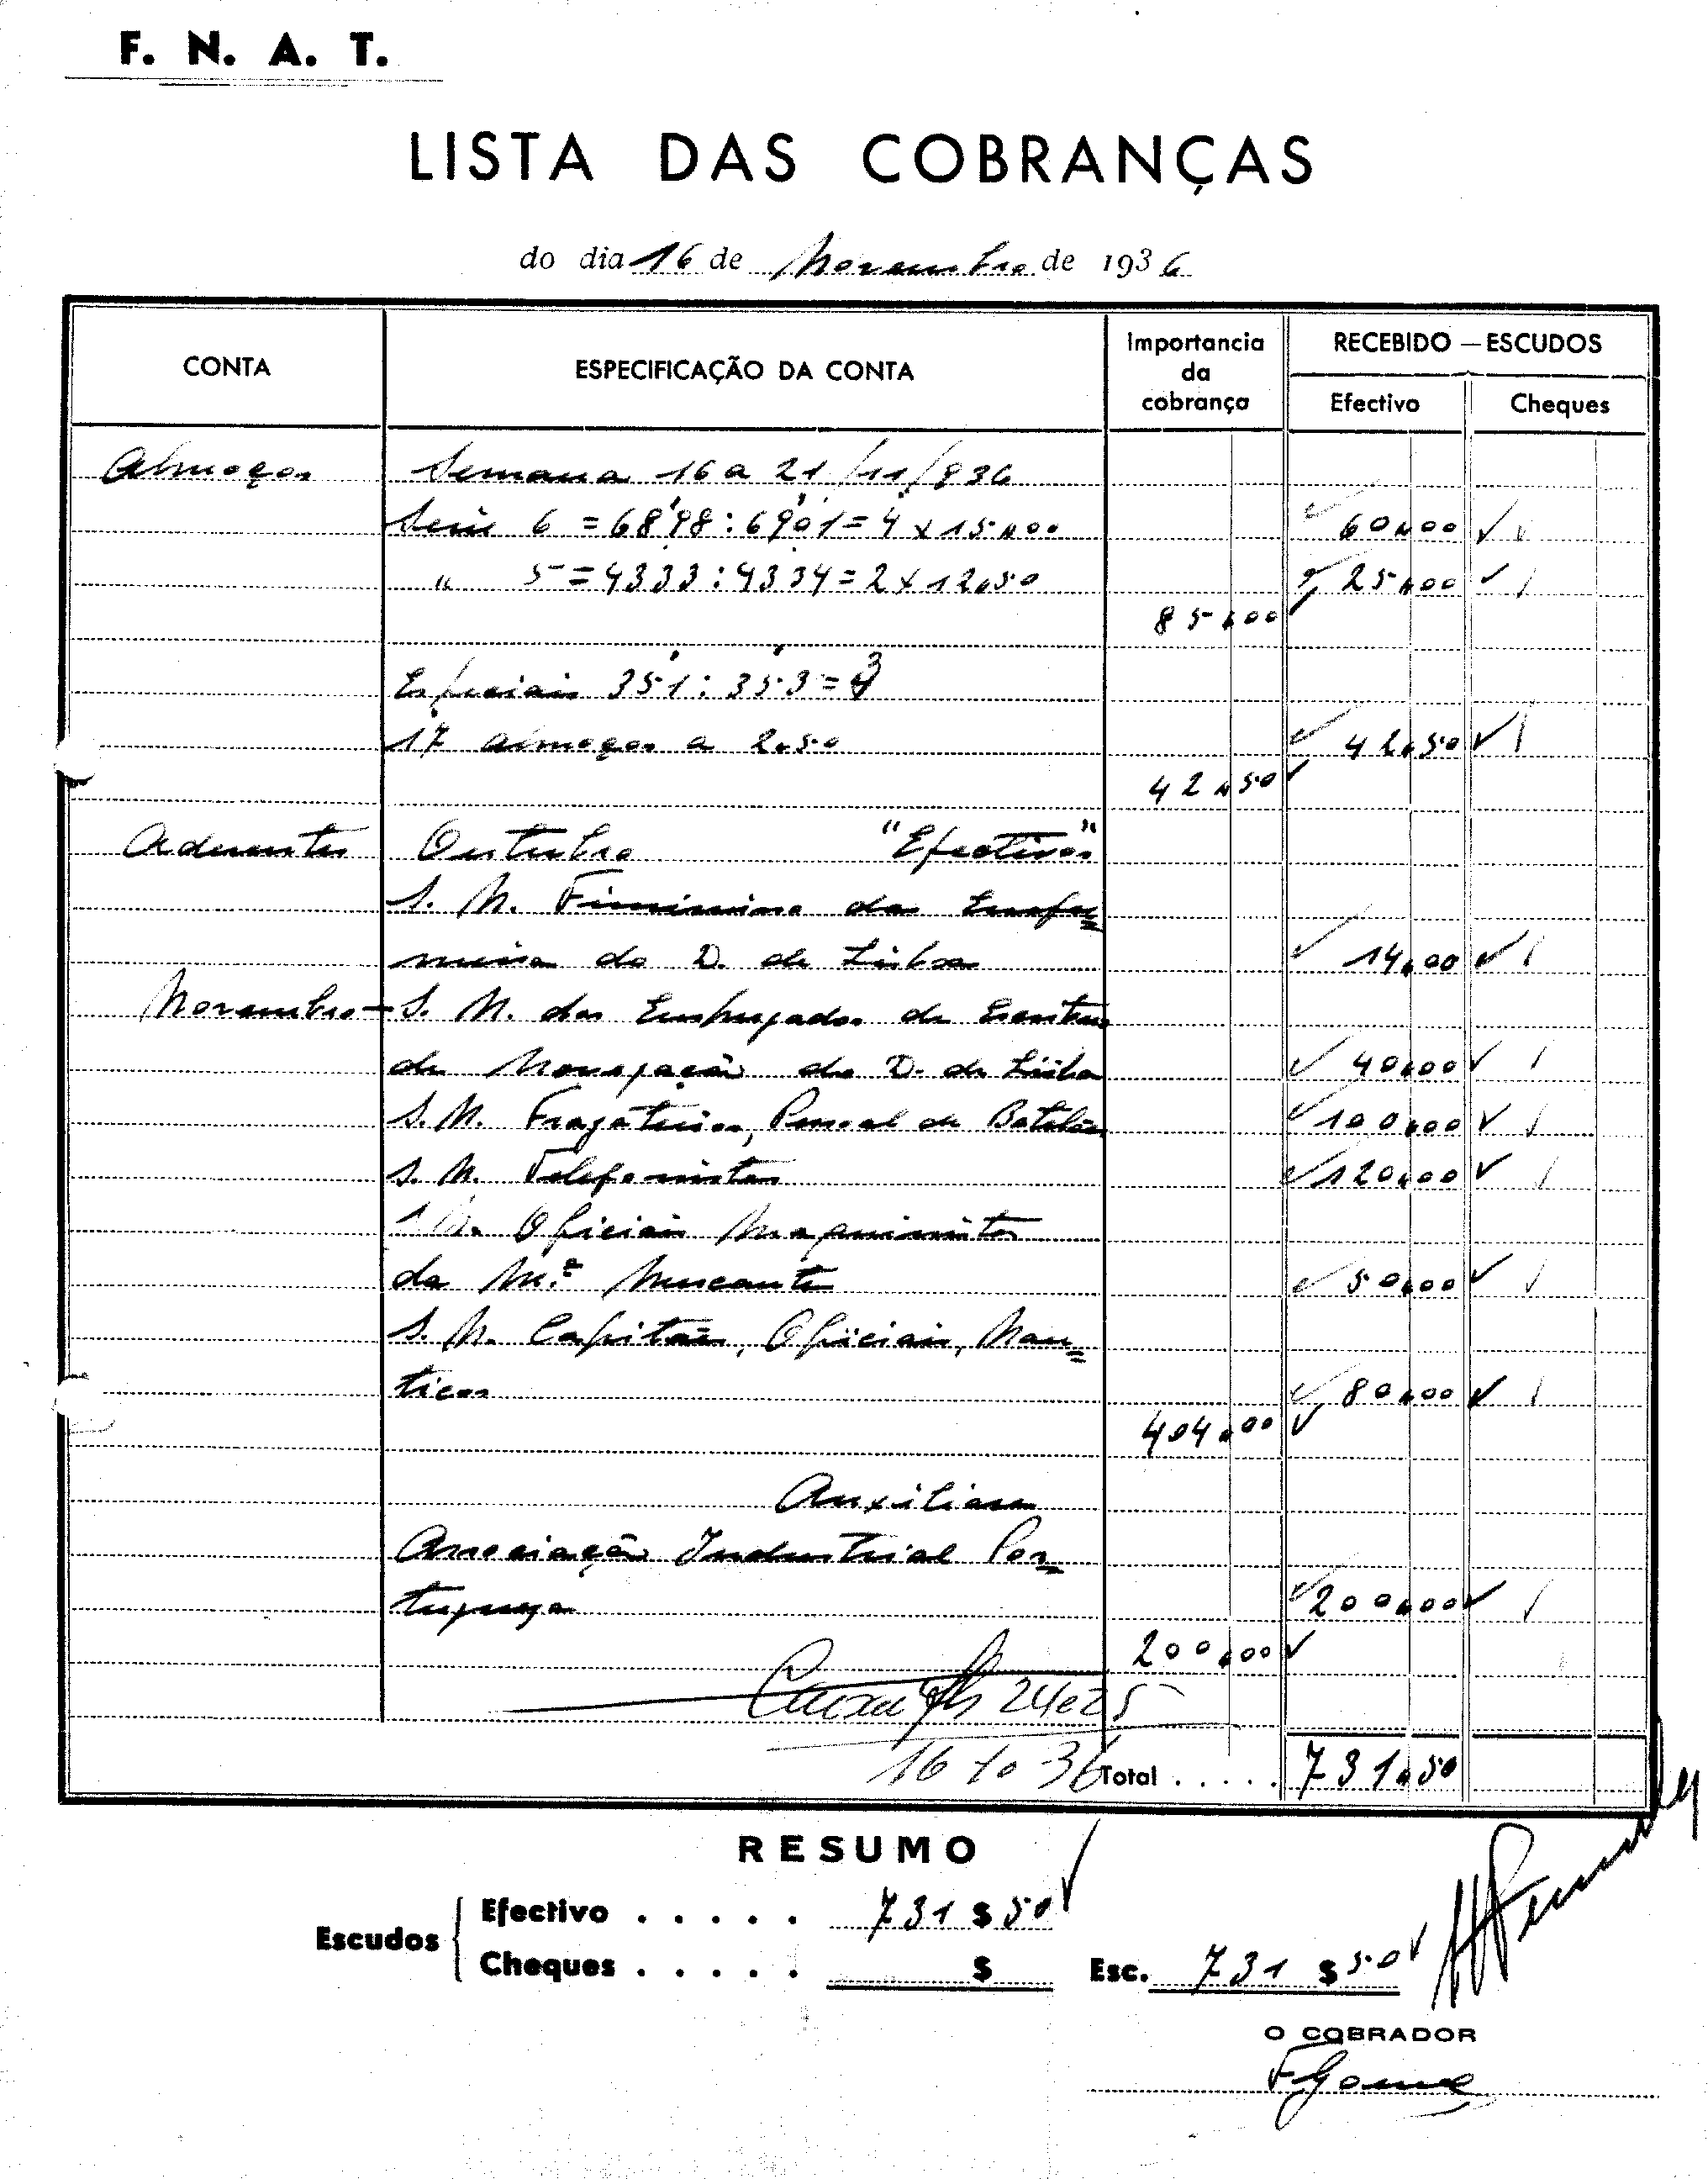 F. N. A. T.
LISTA DAS COBRANÇAS
do dia 16 de Novembro de 1936
CONTA ESPECIFICAÇÃO DA CONTA Importancia da cobrança RECEBIDO — ESCUDOS
Efectivo Cheques
Almoços Semana 16 a 21/11/936
Serie 6 = 6898 : 6901 = 4 x 15$00 60$00
" 5 = 4333 : 4334 = 2 x 12$50 25$00
85$00
Especiais 351 : 353 = 3
17 almoços a 2$50 42$50
42$50
Aderentes Outubro "Efectivos"
S. N. Feminino da Enfer=
meira do D. de Lisboa 14$00
Novembro - S. N. dos Empregados de
de Navegação do D. de Lisboa 40$00
S. N. Fragateiros, Pessoal de Batelões 100$00
S. N. Telefonistas 120$00
S. N. Oficiais Maquinistas
da M.ª Mercante 50$00
S. N. Capitães, Oficiais, Nau=
ticos 80$00
404$00
Auxiliares
Associação Industrial Por=
tuguesa 200$00
200$00
24 e 25
16 10 36 Total . . . . . 731$50
RESUMO
Escudos Efectivo . . . . . 731 $ 50
Cheques . . . . . $ Esc. 731 $ 50
O COBRADOR
F Gomes